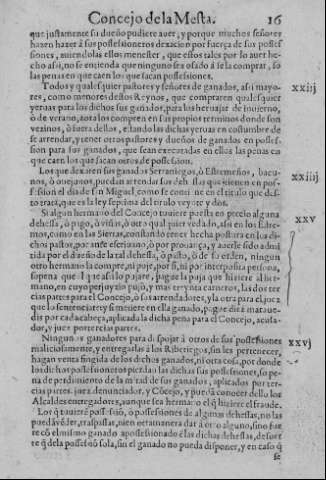 Concejo de la Mesta. 16
que justamente su dueño pudiere auer, y porque muchos señores
hazen hazer a sus possessioneros dexacion por fuerça de sus posses
siones, auiendolas ellos menester, que estos tales por lo auer he-
cho assi, no se entienda que ninguno sea osado à se la comprar, so
las penas en que caen los que sacan possessiones.
Todos y qualesquier pastores y señores de ganados, assi mayo- xxiij
res, como menores destos Reynos, que compraren qualesquier
yeruas para los dichos sus ganados, para los heruajar de inuierno,
ò de verano, aora los compren en sus propios terminos donde son
vezinos, ò fuera dellos, estando las dichas yeruas en costumbre de
se arrendar, y tener otros pastores y dueños de ganados en posses-
sion para sus ganados, que sean executados en ellos las penas en
que caen los que sacan otros de possession.
Los que dexaren sus ganados Serraniegos, ò Estremeños, bacu- xxiiij
nos, ò ouejunos, puedan arrendar sus dehessas que tienen en pos-
session el dia de san Miguel, como se contiene en el titulo que des-
to trata, que es la ley septima del titulo veynte y dos.
Si algun hermano del Concejo tuuiere puesta en precio alguna xxv
dehessa, ò pago, ò viñas, ò otro qualquier vedado, assi en los Estre-
mos, como en las Sierras, constando tener hecha postura en los di-
chos pastos, por ante escriuano, ò por prouança, y auerle sido admi
tida por el dueño de la tal dehessa, ò pasto, ò de su orden, ningun
otro hermano la compre, ni puje, por si, ni por interposita persona,
so pena que el que assi lo pujare, pague la puja que hiziere al her-
mano, en cuyo perjuyzio pujò, y mas treynta carneros, las dos ter
cias partes para el Concejo, ò sus arrendadores, y la otra para el juez
que lo sentenciare: y si metiere en ella ganado, pague diez maraue-
dis por cada cabeça, aplicada la dicha pena para el Concejo, acusa-
dor, y juez por tercias partes.
Ningunos ganaderos para despojar à otros de sus possessiones xxvj
maliciosamente, y entregarlas à los Riberiegos, sin les pertenecer,
hagan venta fingida de los dichos ganados, ni otra cosa, por donde
los dichos possessioneros pierdan las dichas sus possessiones, so pe-
na de perdimiento de la mitad de sus ganados, aplicados por ter-
cias partes, juez, denunciador, y Cõcejo, y pueda conocer dello los
Alcaldes entregadores, aunque sea hermano el q̃ hiziere el fraude.
Los q̃ tuuierẽ possessiõ, ò possessiones de algunas dehessas, no las
puedã vẽder, traspassar, ni en otra manera dar à otro alguno, sino fue
re cõ el mismo ganado apossessionado è las dichas dehessas, de suer
te q̃ dela possessiõ sola, sin el ganado no pueda disponer, y en caso q̃
se